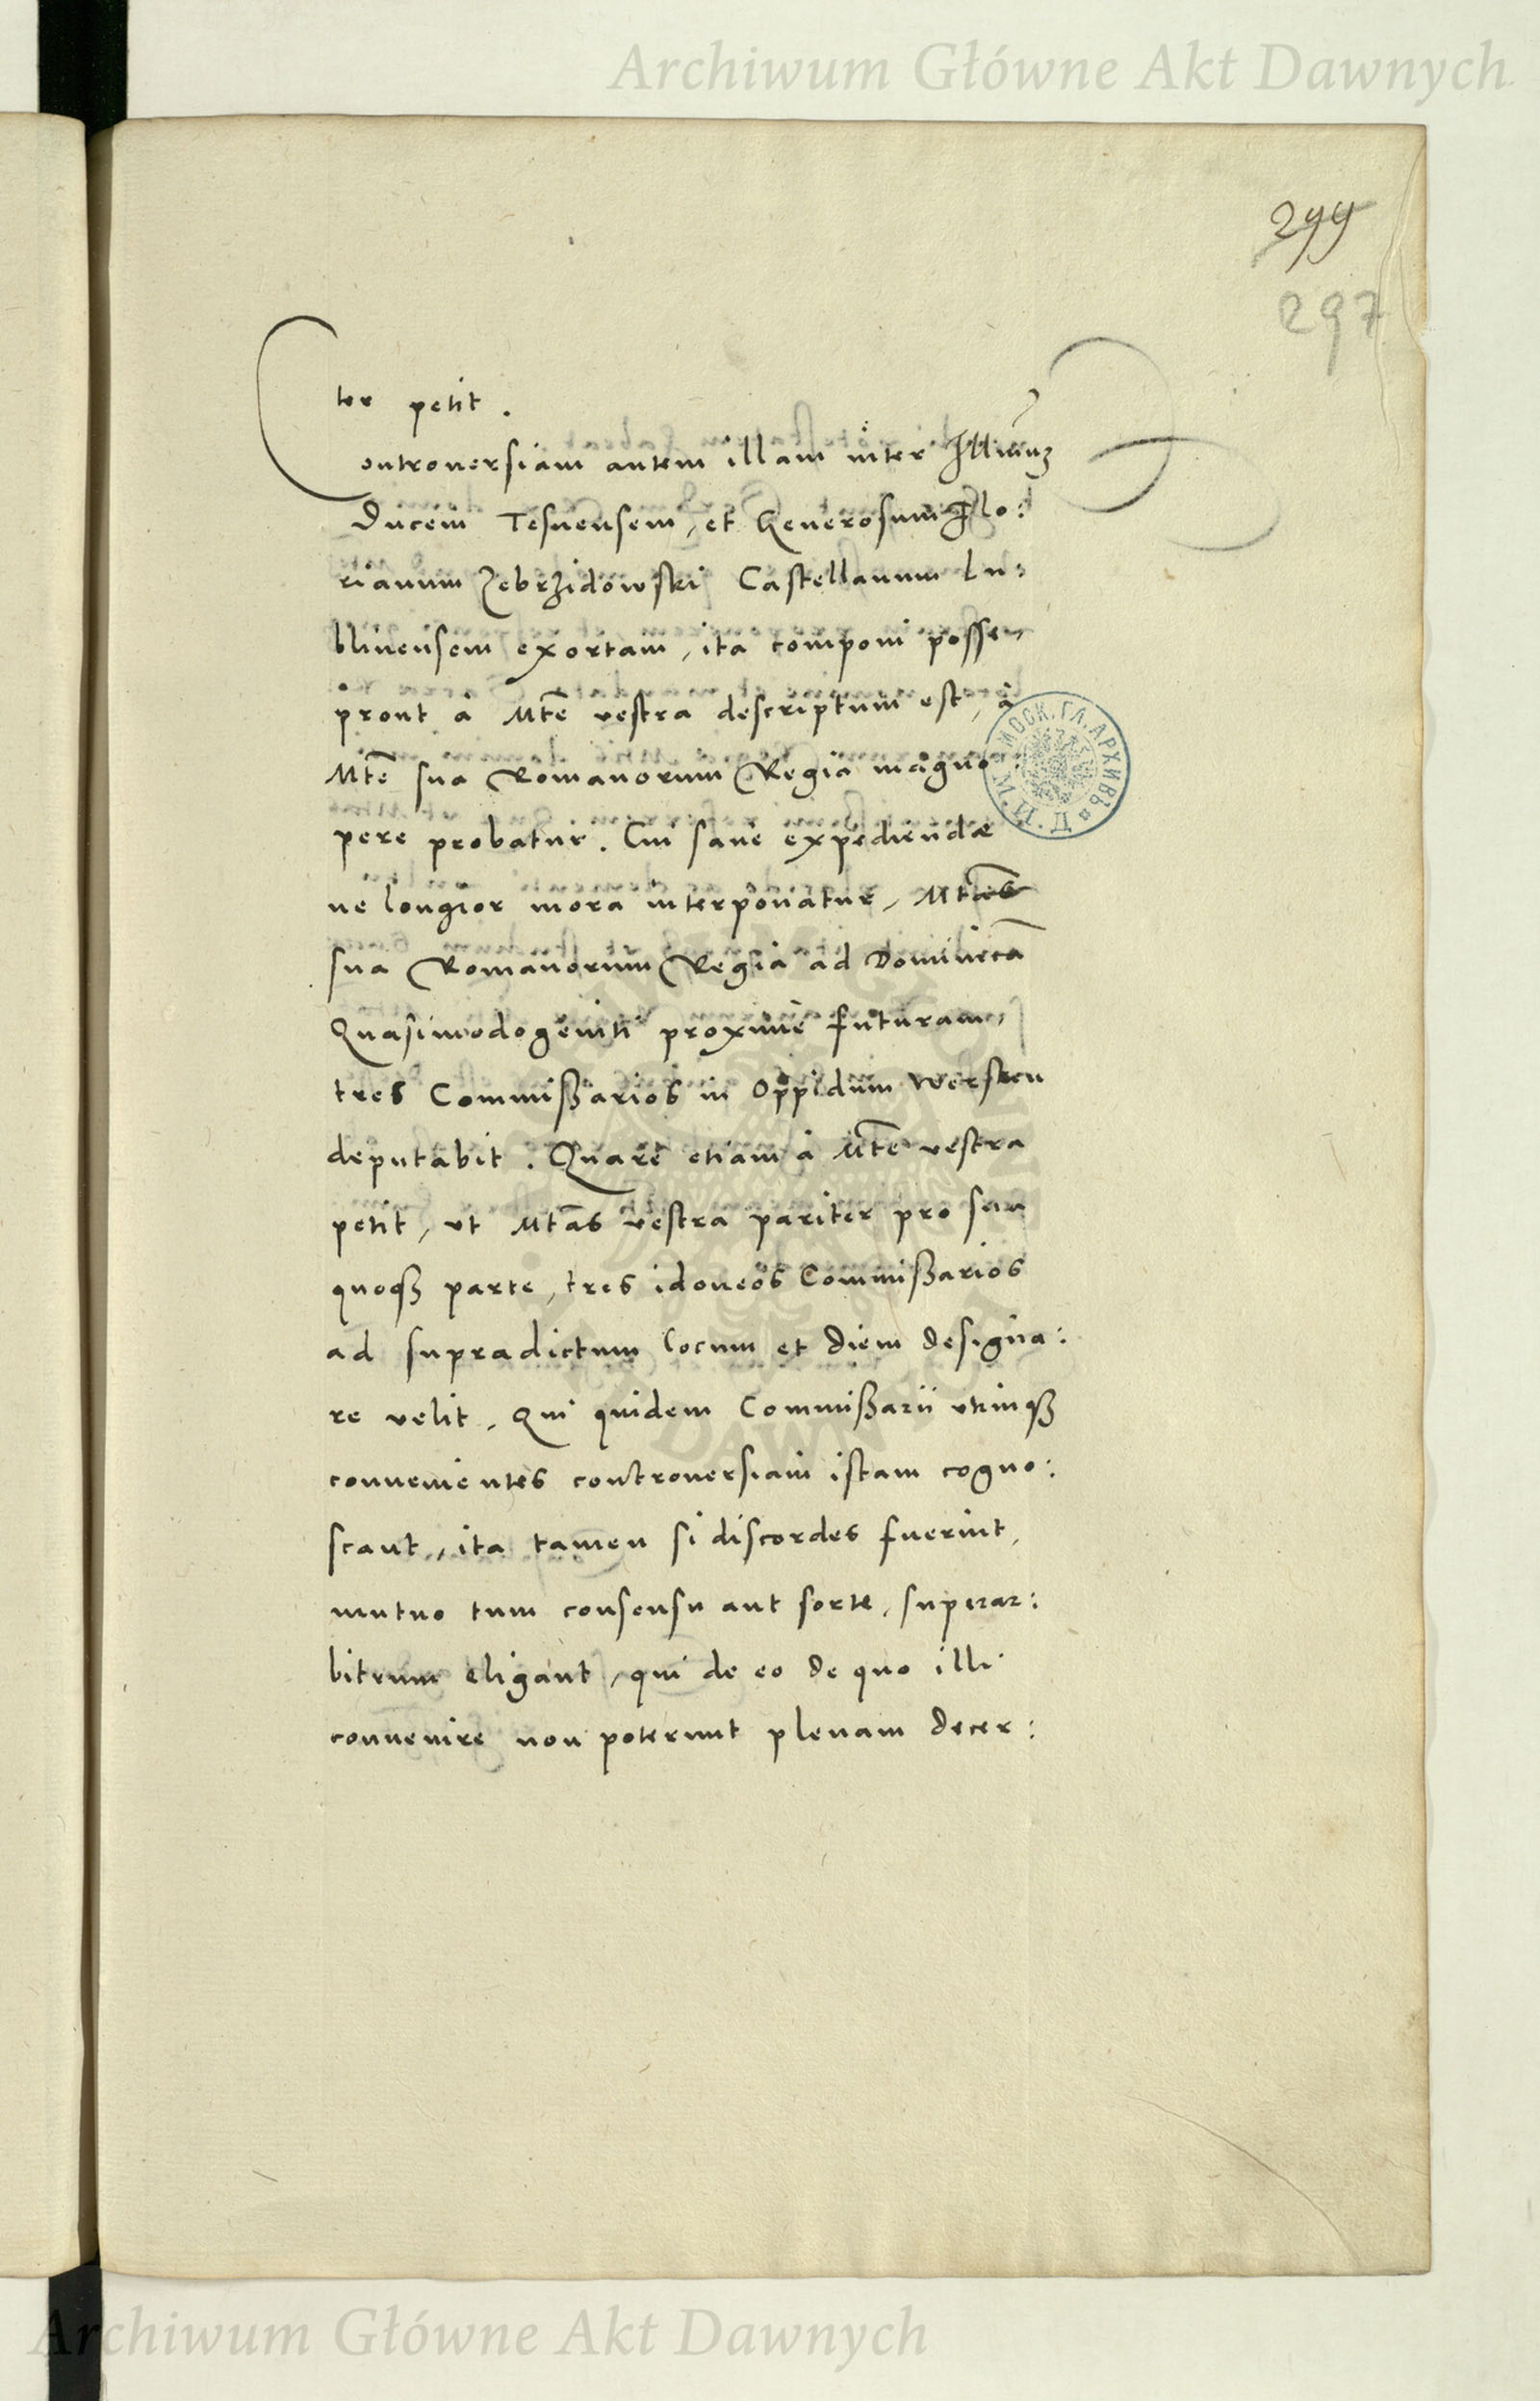 Archiwum Główne Akt Dawnych
299
297
ter petit.
Controuersiam autem illam inter Illmu͂ꝫ
Ducem Tesnensem, et Generosum Flo:
rianum Zebrzidowski Castellanum Lu:
blinensem exortam, ita componi posse,
prout à Mte͂ vestra descriptum est, à
Mte͂ sua Romanorum Regia magno:
pere probatur. Cui sane expediendæ
ne longior mora interponatur, Mta͂s
sua Romanorum Regia ad Dominica͂
Quasimodogeniti proximè futuram,
tres Commißarios in Oppidum
deputabit. Quare etiam à Mte͂ vestra
petit, vt Mta͂s vestra pariter pro sua
quoqꝫ parte, tres idoneos Commißarios
ad supradictum locum et diem designa:
re velit, Qui quidem Commißarii vtrinqꝫ
conuenientes controuersiam istam cogno:
scant, ita tamen si discordes fuerint,
mutuo tum consensu aut sorte, superar:
bitrum eligant, qui de eo de quo illi
conuenire non poterunt plenam decer:
Ц.П.М. МОСК. ГЛ. АРХИВЪ
Archiwum Główne Akt Dawnych